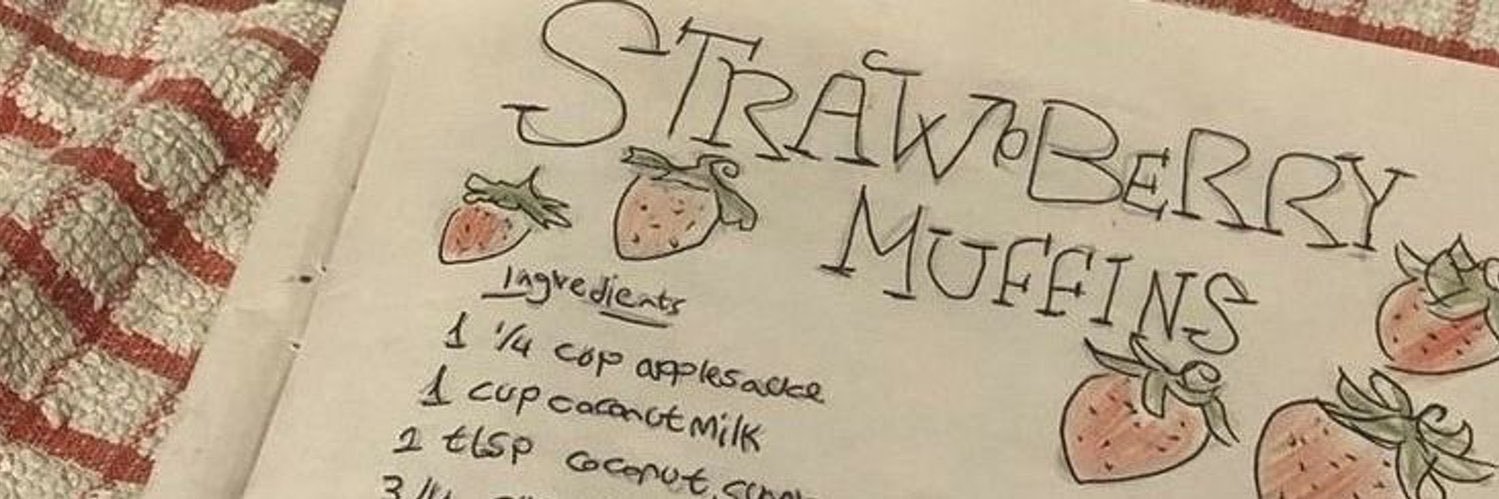 STRAWBERRY
MUFFINS
Ingredients
1 1/4 cup applesauce
1 cup coconut milk
1 tbsp coconut
3/4